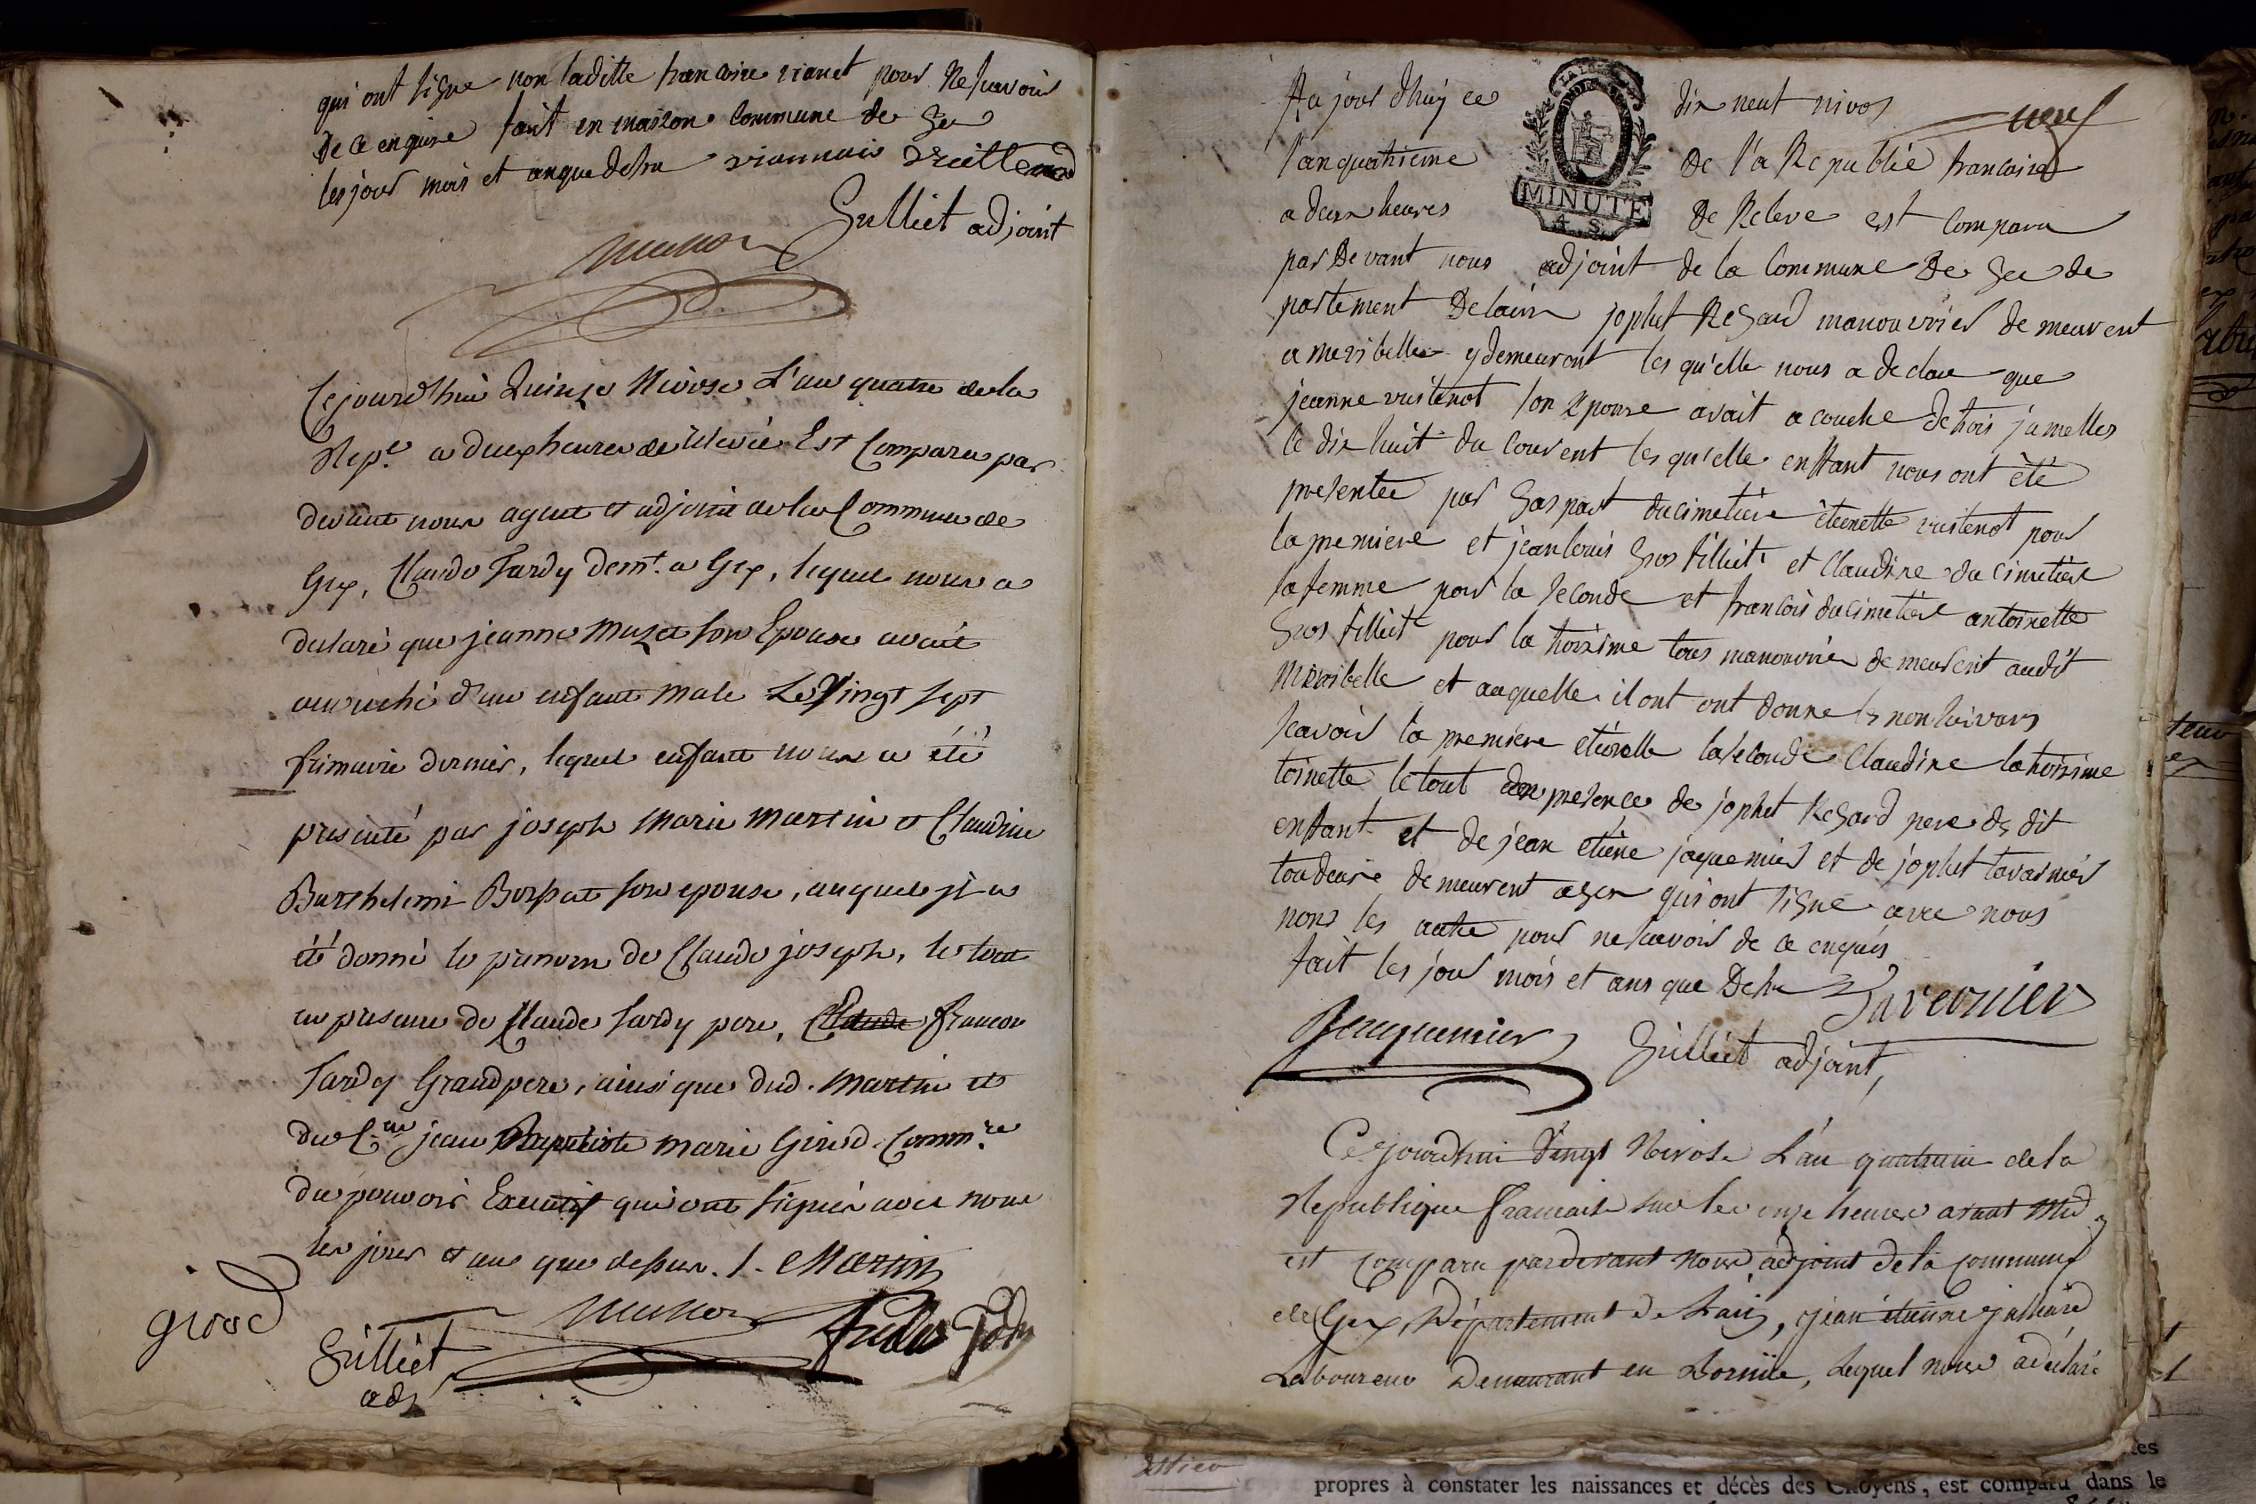 qui ont signe non laditte francoise vianet pour ne scavoir
de ce enquise fait en maison commune de Gex
les jour mois et an que dessu viannais Vuillermoz
Gulliet adjoint
Cejourd'hui Quinze Nivose L'an quatre de la
Repe. a deux heures de relevée Est Comparu par
devant nous agent et adjoint de la Commune de
Gex, Claude Tardy demt. a Gex, lequel nous a
declaré que jeanne Muzet son Epouse avait
accouché d'un enfant male Le Vingt sept
frimaire dernier, lequel enfant nous a été
presenté par joseph Marie Martin et Claudine
Barthelemi Borssat son epouse, auquel il a
été donné le prenom de Claude joseph, le tout
en presence de Claude Tardy pere, Claude francois
Tardy Grandpere, ainsi que dud. Martin et
du C.en jean Baptiste Marie Girod Comm.re
du pouvoir Executif qui ont signés avec nous
les jours et an que dessus. /. Martin
girod
Gulliet
adj
Aujourd'huy ce dix neuf nivos neuf
l'an quatrieme de l'a Republie francoise
a deux heures de Releve est comparu
MINUTE
4 S
par devant nous adjoint de la Commune de Gex de
partement de lain josphet Regard manouvrier demeurent
a meribelle y demeuront les qu'elle nous a declare que
jeanne vuitenot son epouse avait acouche de trois jumelles
le dix huit du courent les qu'elle enffant nous ont èté
presentée par Gaspart ducimetiere étienette vuitenot pour
la premiere et jean louis Grosfilliet et Claudine ducimetiere
sa femme pour la seconde et francois ducimetiere antoinette
Grosfilliet pour la troisime tous manouvrier demeurent audit
Miribelle et auquelle il ont ont donne les non suivans
scavoir la premiere etienette la seconde Claudine la troisime
toinette le tout en presence de josphet Regard pere ds dit
enffant et de jean etiene jaquemier et de josphet tavarnier
tou deusie demeurent a gex qui ont signe avec nous
nons les autre pour ne scavoir de ce enquis
fait les jour mois et ans que dessu Tavernier
Jacquemier Gulliet adjoint,
Cejourd'hui Vingt Nivose L'an quatrieme de la
Republique francaise sur les onze heures avant Midy
est comparu pardevant nous adjoint de la commune
de Gex, Département de L'ain, jean étienne julliard
Laboureur Demeurant en Lornie, Lequel nous a déclaré
propres à constater les naissances et décès des Citoyens, est comparu dans le